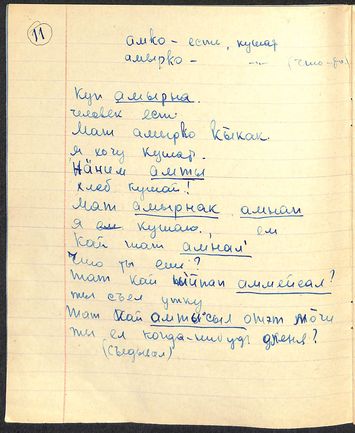 11
амко - есть, кушат
амырко - -"- (что-н.)
Куп амырна.
человек ест.
Мат амырко кыкак
я хочу кушат.
Нäним амты
хлеб кушай!
Мат амырнак амнап
я кушаю, ем
Кай тат амнал
что ты ешь?
тат кай аммейсал?
ты съел утку
тат кай амтысыл
ты ел когда-нибудь
(съедывал)